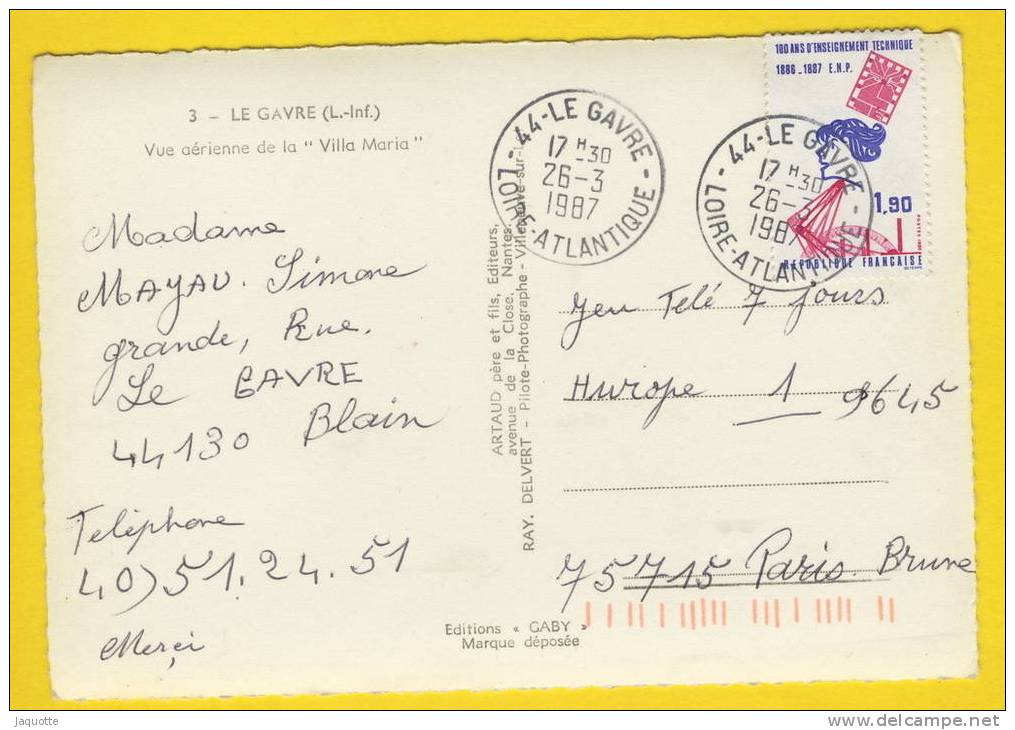 3 – LE GAVRE (L.-Inf.)
Vue aérienne de la " Villa Maria "
Madame
MAYAU. Simone
grande, Rue.
Le GAVRE
44130 Blain
Teléphone
40) 51.24.51
Merci
ARTAUD père et fils, Editeurs,
avenue de la Close, Nantes.
RAY. DELVERT - Pilote-Photographe - Villeneuve-sur-L
Editions « GABY »
Marque déposée
44-LE GAVRE
17 H-30
26-3
1987
LOIRE-ATLANTIQUE
44-LE GAVRE
17 H-30
26-3
1987
LOIRE-ATLANTIQUE
100 ANS D'ENSEIGNEMENT TECHNIQUE
1886-1987 E.N.P.
1,90
POSTES 1986
RÉPUBLIQUE FRANÇAISE
Jeu Telé 7 jours
Hurope 1 9645
75715 Paris Brune
Jaquotte
www.delcampe.net